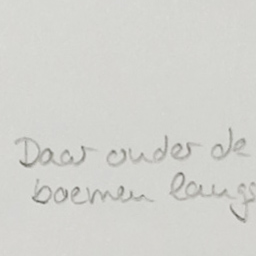 Daar onder de
boemen langs